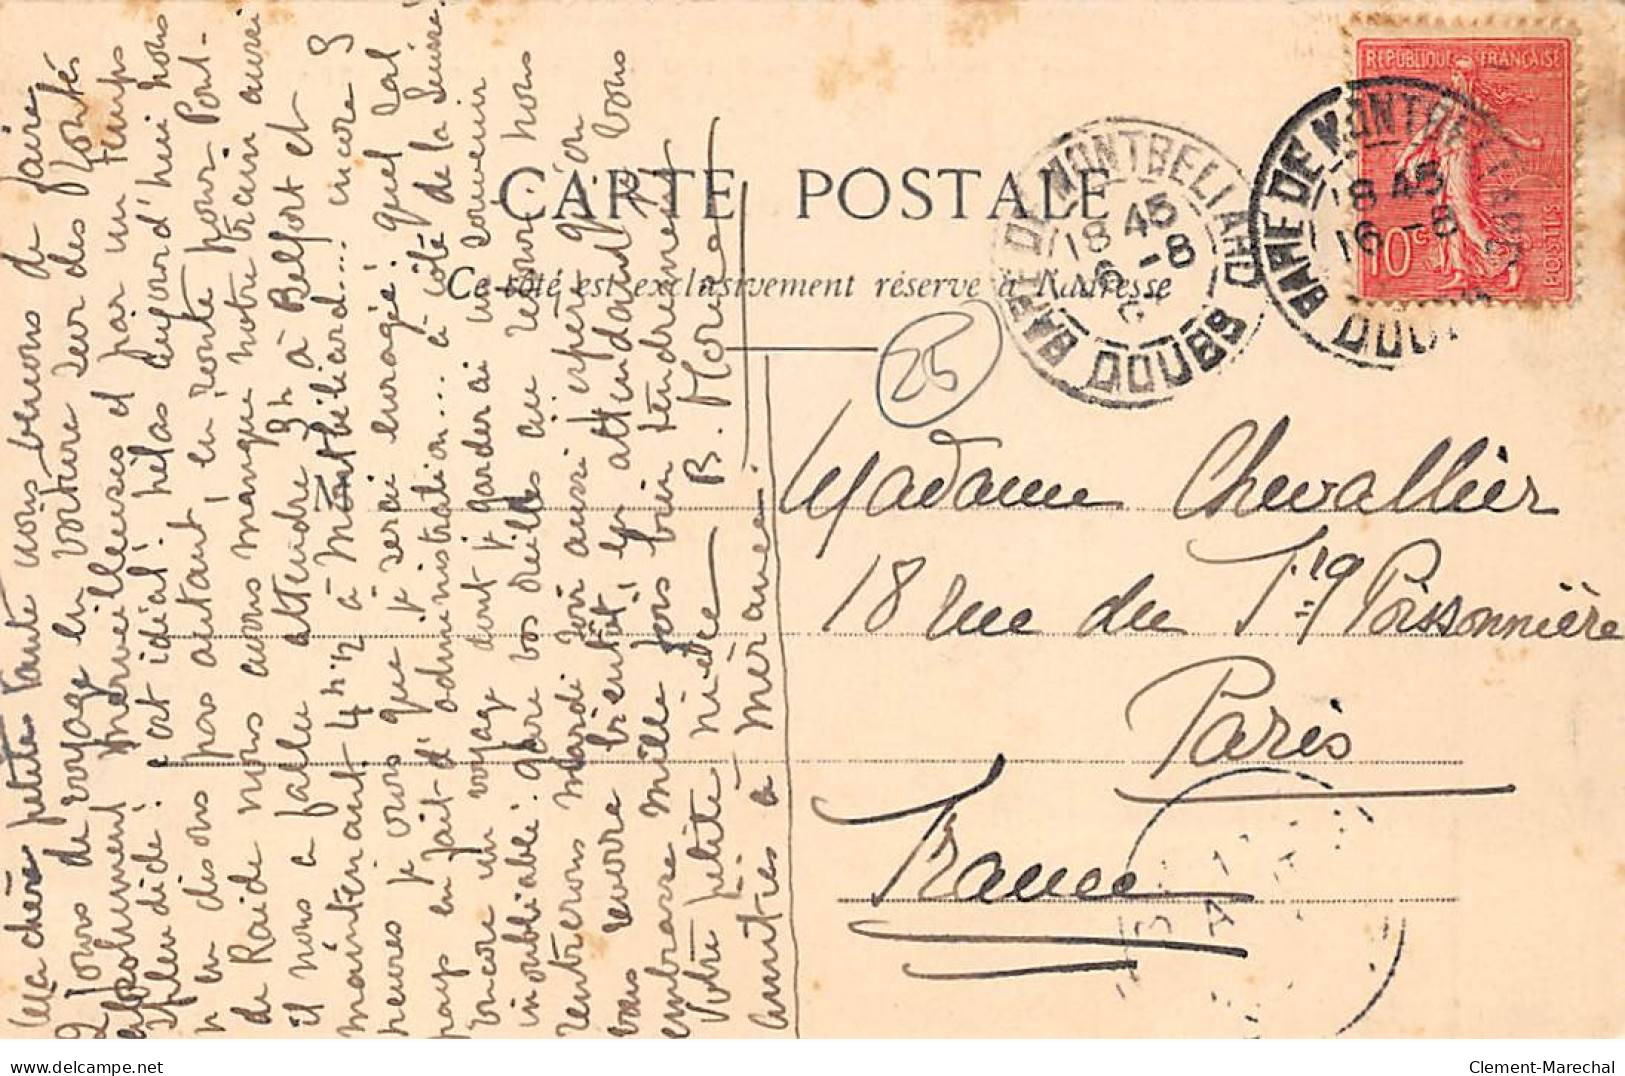 CARTE POSTALE
Ce côté est exclusivement réservé à l'adresse
REPUBLIQUE FRANÇAISE
10 c
POSTES
GARE DE MONTBELIARD
18 45
16 -8
DOUBS
GARE DE MONTBELIARD
18 45
16 -8
DOUBS
25
Madame Chevallier
18 rue du Fg Poissonnière
Paris
France
Ma chère petite tante nous venons de faire
2 jours de voyage en voiture sur des routes
absolument merveilleuses et par un temps
splendide : c'est idéal ! hélas aujourd'hui nous
n'en disons pas autant, en route pour Pont-
de Roide nous avons manqué notre train aussi
il nous a fallu attendre 3h à Belfort et
maintenant 4h 1/2 à Montbéliard... encore 9
heures je crois que je serai enragé ! quel sal
pays en fait d'administration... à côté de la Suisse !
encore un voyage dont je garderai un souvenir
inoubliable : gare vos oreilles au revoir nous
rentrerons mardi soir aussi espère qu'on
vous reverra bientôt ; en attendant je vous
embrasse mille fois bien tendrement
Votre petite nièce B. 
amitiés à mèramée.
delcampe.net
Clement-Marechal